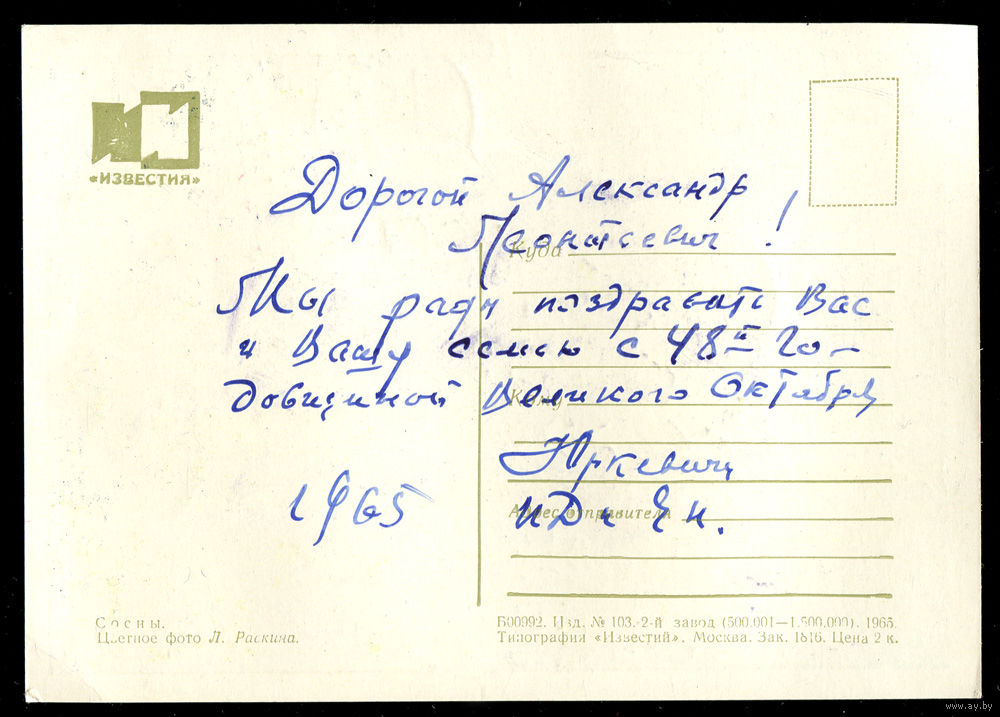 «ИЗВЕСТИЯ»
Дорогой Александр
Леонтьевич!
Куда
Мы рады поздравить Вас
и Вашу семью с 48й го-
довщиной Великого Октября
Юркевичи
1965
Адрес отправителя
Сосны.
Цветное фото Л. Раскина.
Б00992. Изд. № 103.-2-й завод (500.001—1.500.000). 1965.
Типография «Известий». Москва. Зак. 1816. Цена 2 к.
www.ay.by